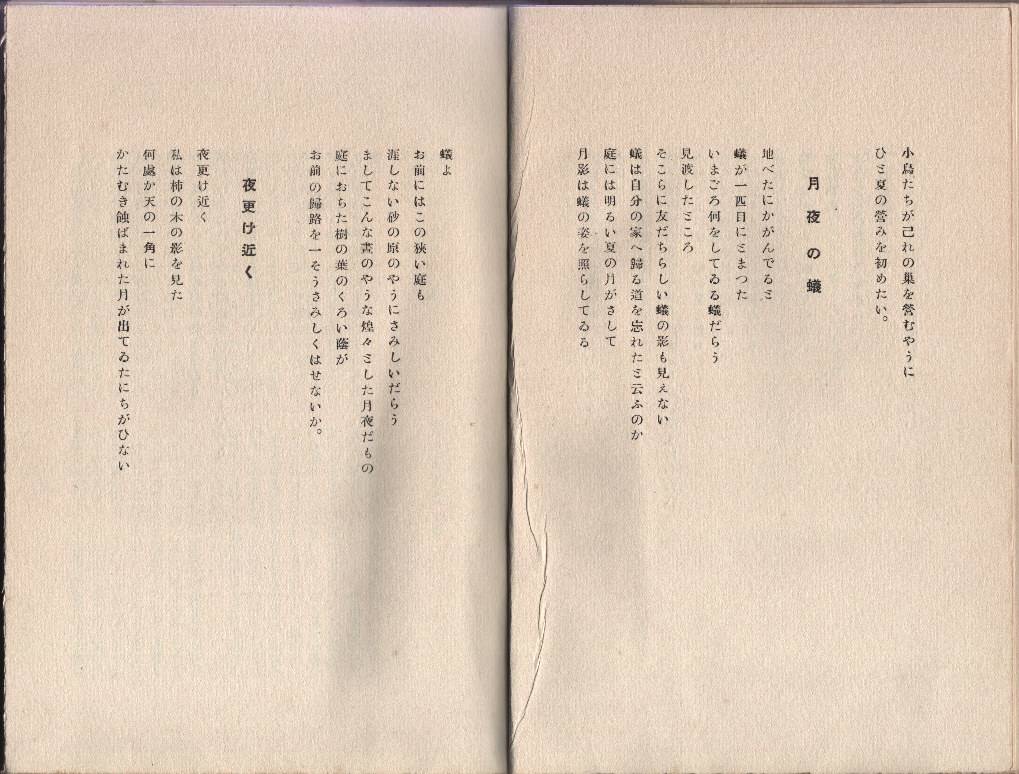 小鳥たちが己れの巣を營むやうに
ひと夏の營みを初めたい。
月夜の蟻
地べたにかがんでゐると
蟻が一匹目にとまつた
いまごろ何をしてゐる蟻だらう
見渡したところ
そこらに友だちらしい蟻の影も見えない
蟻は自分の家へ歸る道を忘れたと云ふのか
庭には明るい夏の月がさして
月影は蟻の姿を照らしてゐる
蟻よ
お前にはこの狹い庭も
涯しない砂の原のやうにさみしいだらう
ましてこんな晝のやうな煌々とした月夜だもの
庭におちた樹の葉のくろい蔭が
お前の歸路を一そうさみしくはせないか。
夜更け近く
夜更け近く
私は柿の木の影を見た
何處か天の一角に
かたむき蝕ばまれた月が出てゐたにちがひない